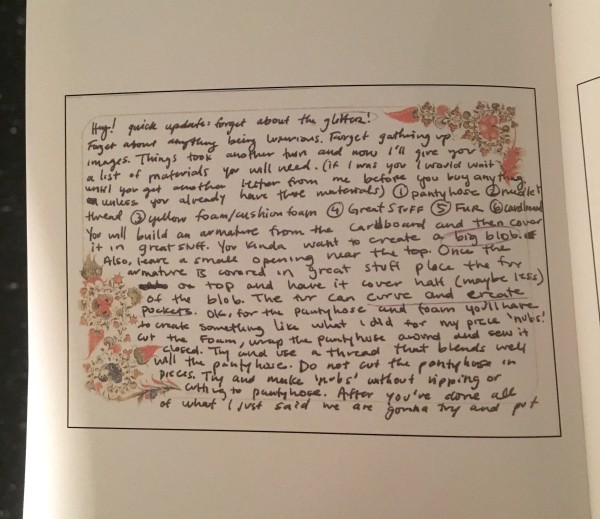 Hey! quick update: forget about the glitter!
Forget about anything being luxurious. Forget gathering up
images. Things took another turn and now I'll give you
a list of materials you will need. (if I was you I would wait
until you get another letter from me before you buy anything
unless you already have those materials) ① pantyhose ②
thread ③ yellow foam/cushion foam ④ Great Stuff ⑤ Fur ⑥ cardboard
You will build an armature from the cardboard and then cover
it in great stuff. You kinda want to create a big blob.
Also, leave a small opening near the top. Once the
armature is covered in great stuff place the fur
on top and have it cover half (maybe less)
of the blob. The fur can curve and create
pockets. Ok, for the pantyhose and foam you'll have
to create something like what I did for my piece 'nubs.'
Cut the foam, wrap the pantyhose around and sew it
closed. Try and use a thread that blends well
with the pantyhose. Do not cut the pantyhose in
pieces. Try and make 'nubs' without ripping or
cutting to pantyhose. After you've done all
of what I just said we are gonna try and put